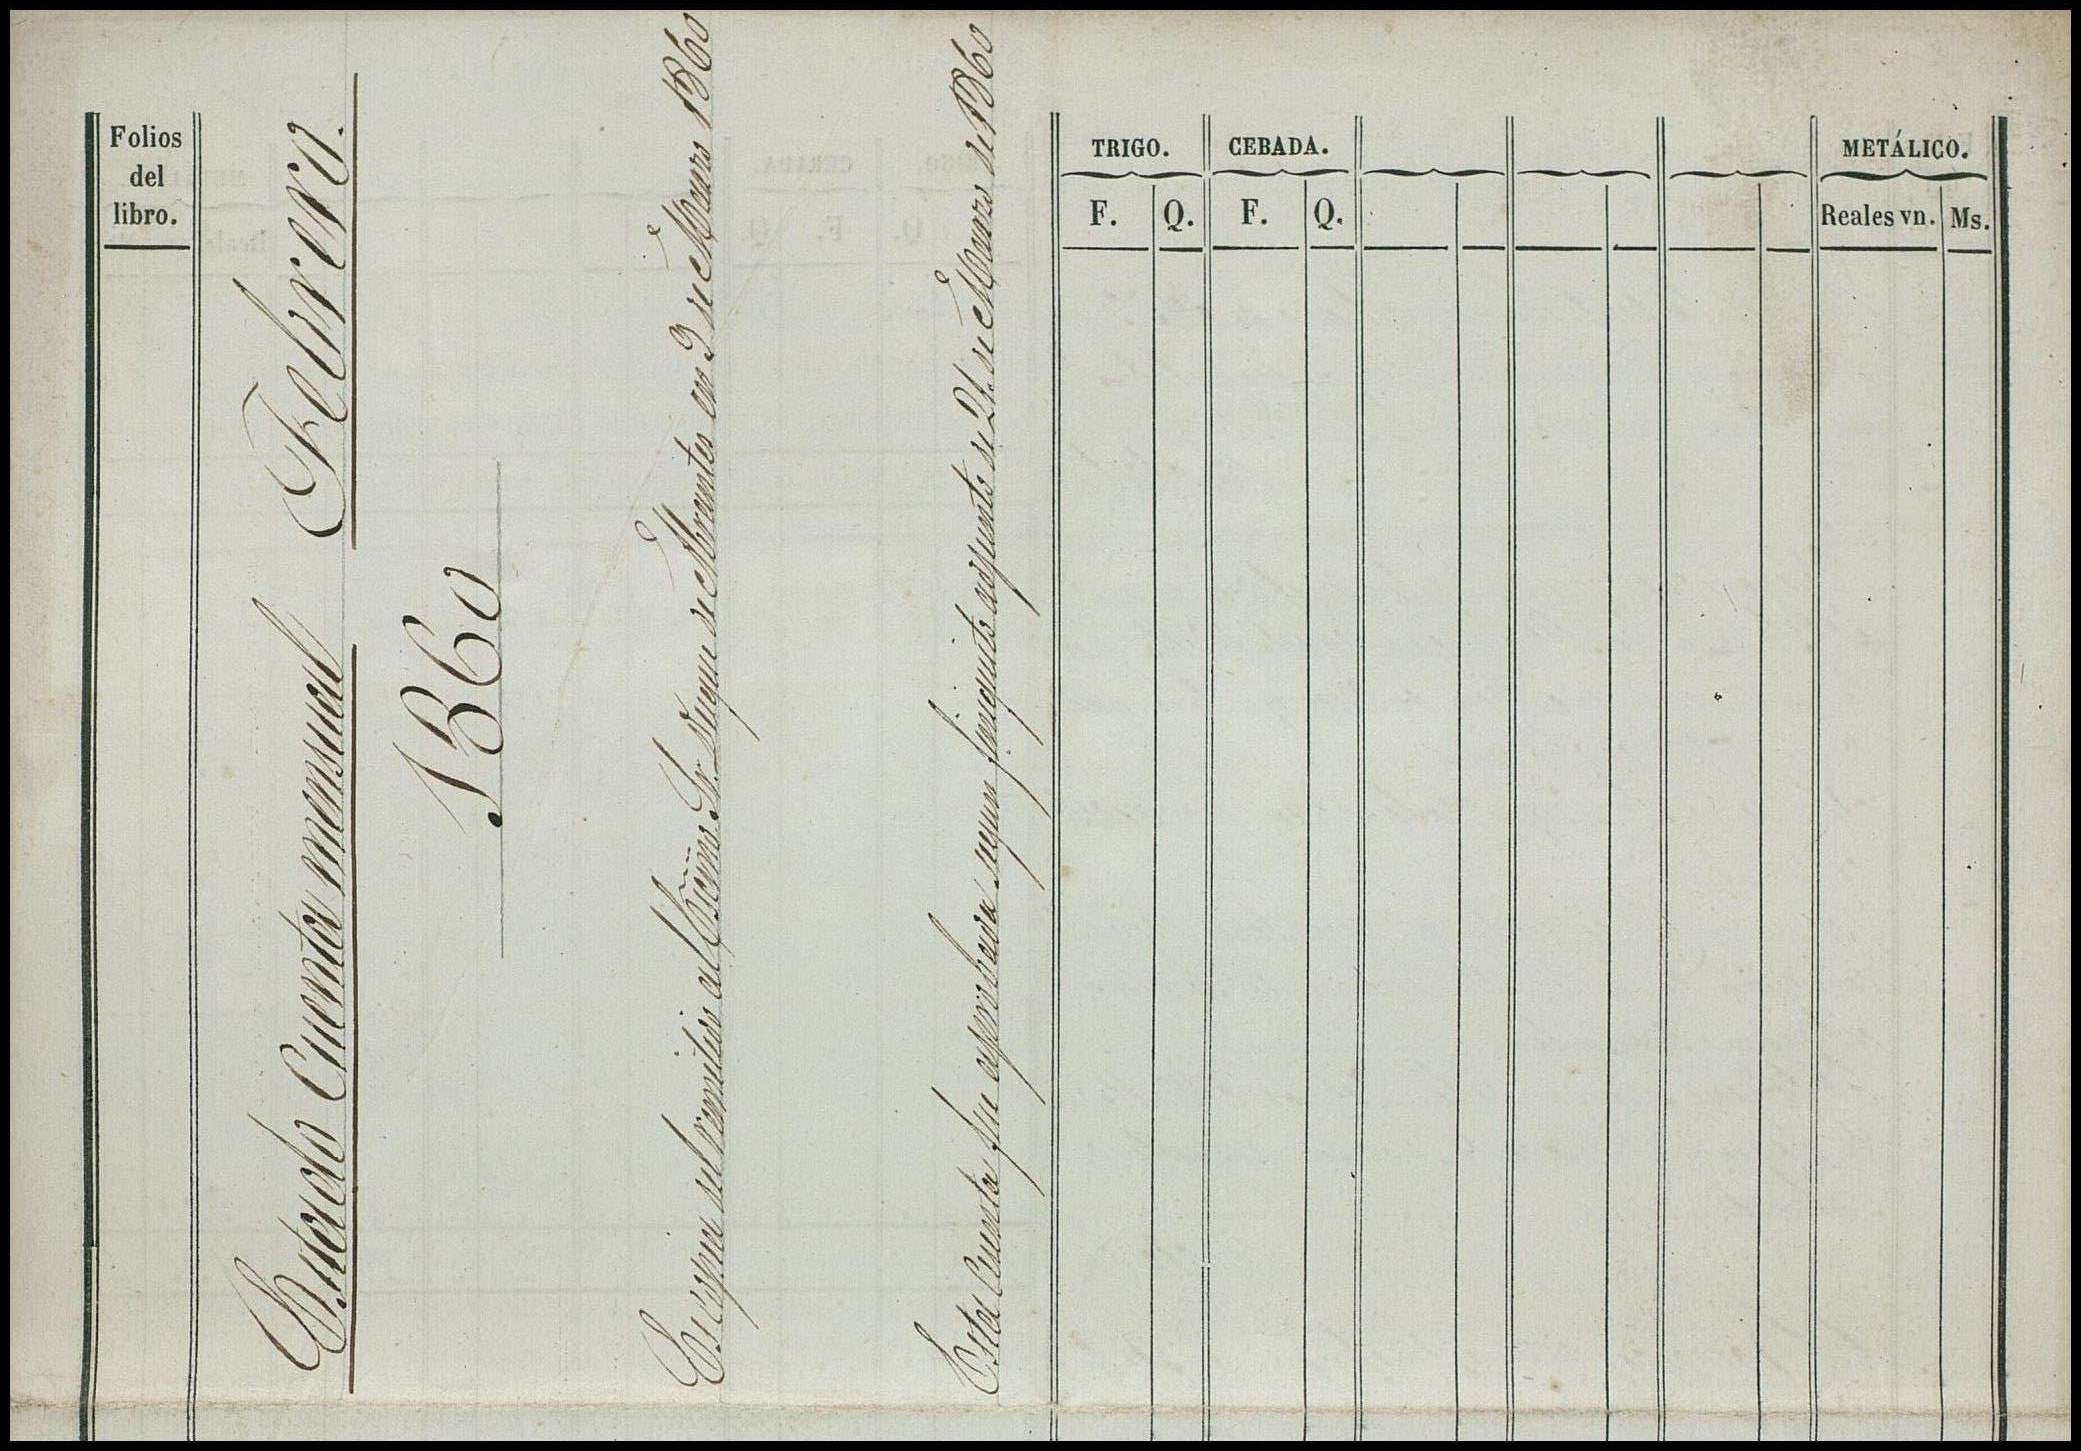 Folios
del
libro.
TRIGO. CEBADA. METÁLICO.
F. Q. F. Q. Reales vn. Ms.
Estado Cuenta mensual Febrero.
1860
Es copia del remitido al Excmo. Sr. Duque de Abrantes en 3 de Marzo 1860
Esta Cuenta fue aprobada segun finiquito adjunto de 21. de Marzo de 1860